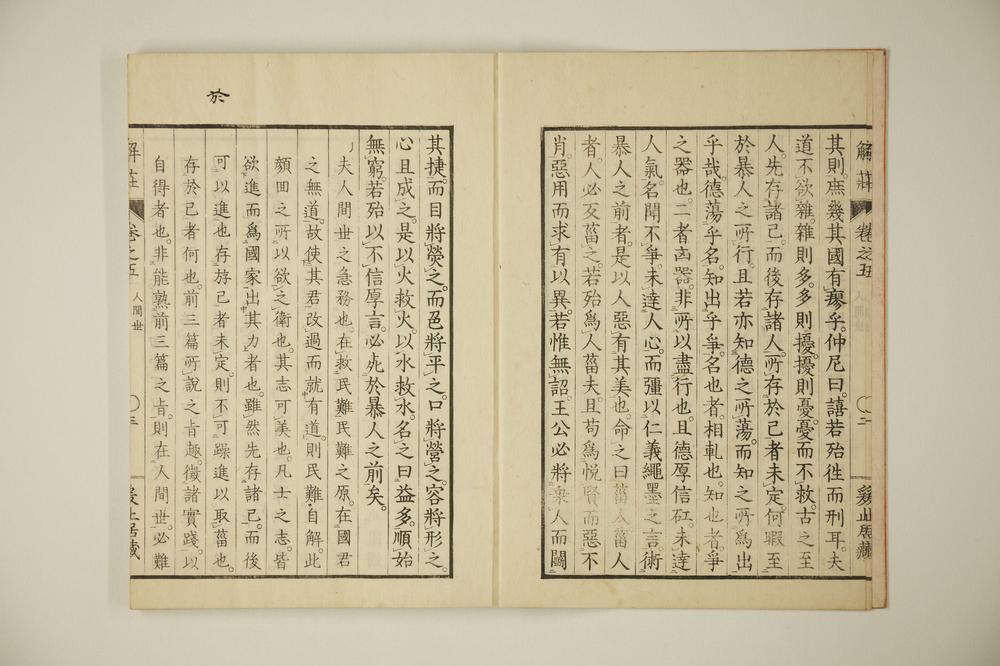 解莊 卷之五 〇二
其則。庶幾其國有瘳乎。仲尼曰。譆若殆往而刑耳。夫
道不欲雜。雜則多。多則擾。擾則憂。憂而不救。古之至
人。先存諸己。而後存諸人。所存於己者未定。何暇至
於暴人之所行。且若亦知德之所蕩。而知之所爲出
乎哉。德蕩乎名。知出乎爭。名也者。相軋也。知也者。爭
之器也。二者凶器。非所以盡行也。且德厚信矼。未達
人氣。名聞不爭。未達人心。而彊以仁義繩墨之言。術
暴人之前者。是以人惡有其美也。命之曰菑人。菑人
者。人必反菑之。若殆爲人菑夫。且苟爲悅賢而惡不
肖。惡用而求有以異。若惟無詔。王公必將乘人而鬪
其捷。而目將熒之。而色將平之。口將營之。容將形之。
心且成之。是以火救火。以水救水。名之曰益多。順始
無窮。若殆以不信厚言。必死於暴人之前矣。
夫人間世之急務也。在救民難。民難之原。在國君
之無道。故使其君改過而就有道。則民難自解。此
顏回之所以欲之衛也。其志可美也。凡士之志。皆
欲進而爲國家出其力者也。雖然先存諸己。而後
可以進也。存於己者未定。則不可躁進以取菑也。
存於己者何也。前三篇所說之旨趣。徵諸實踐。以
自得者也。非能熟前三篇之旨。則在人間世。必難
於
解莊 卷之五 人間世 〇二